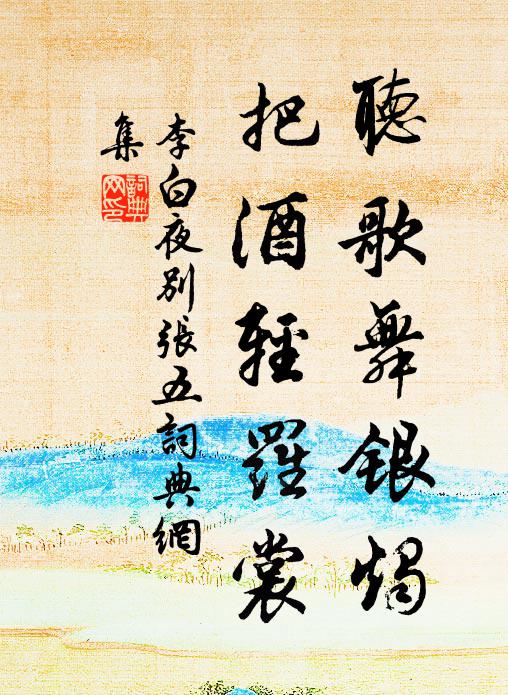 聽歌舞銀燭
把酒輕羅裳
李白夜別張五詞典網
集
詞典
网印